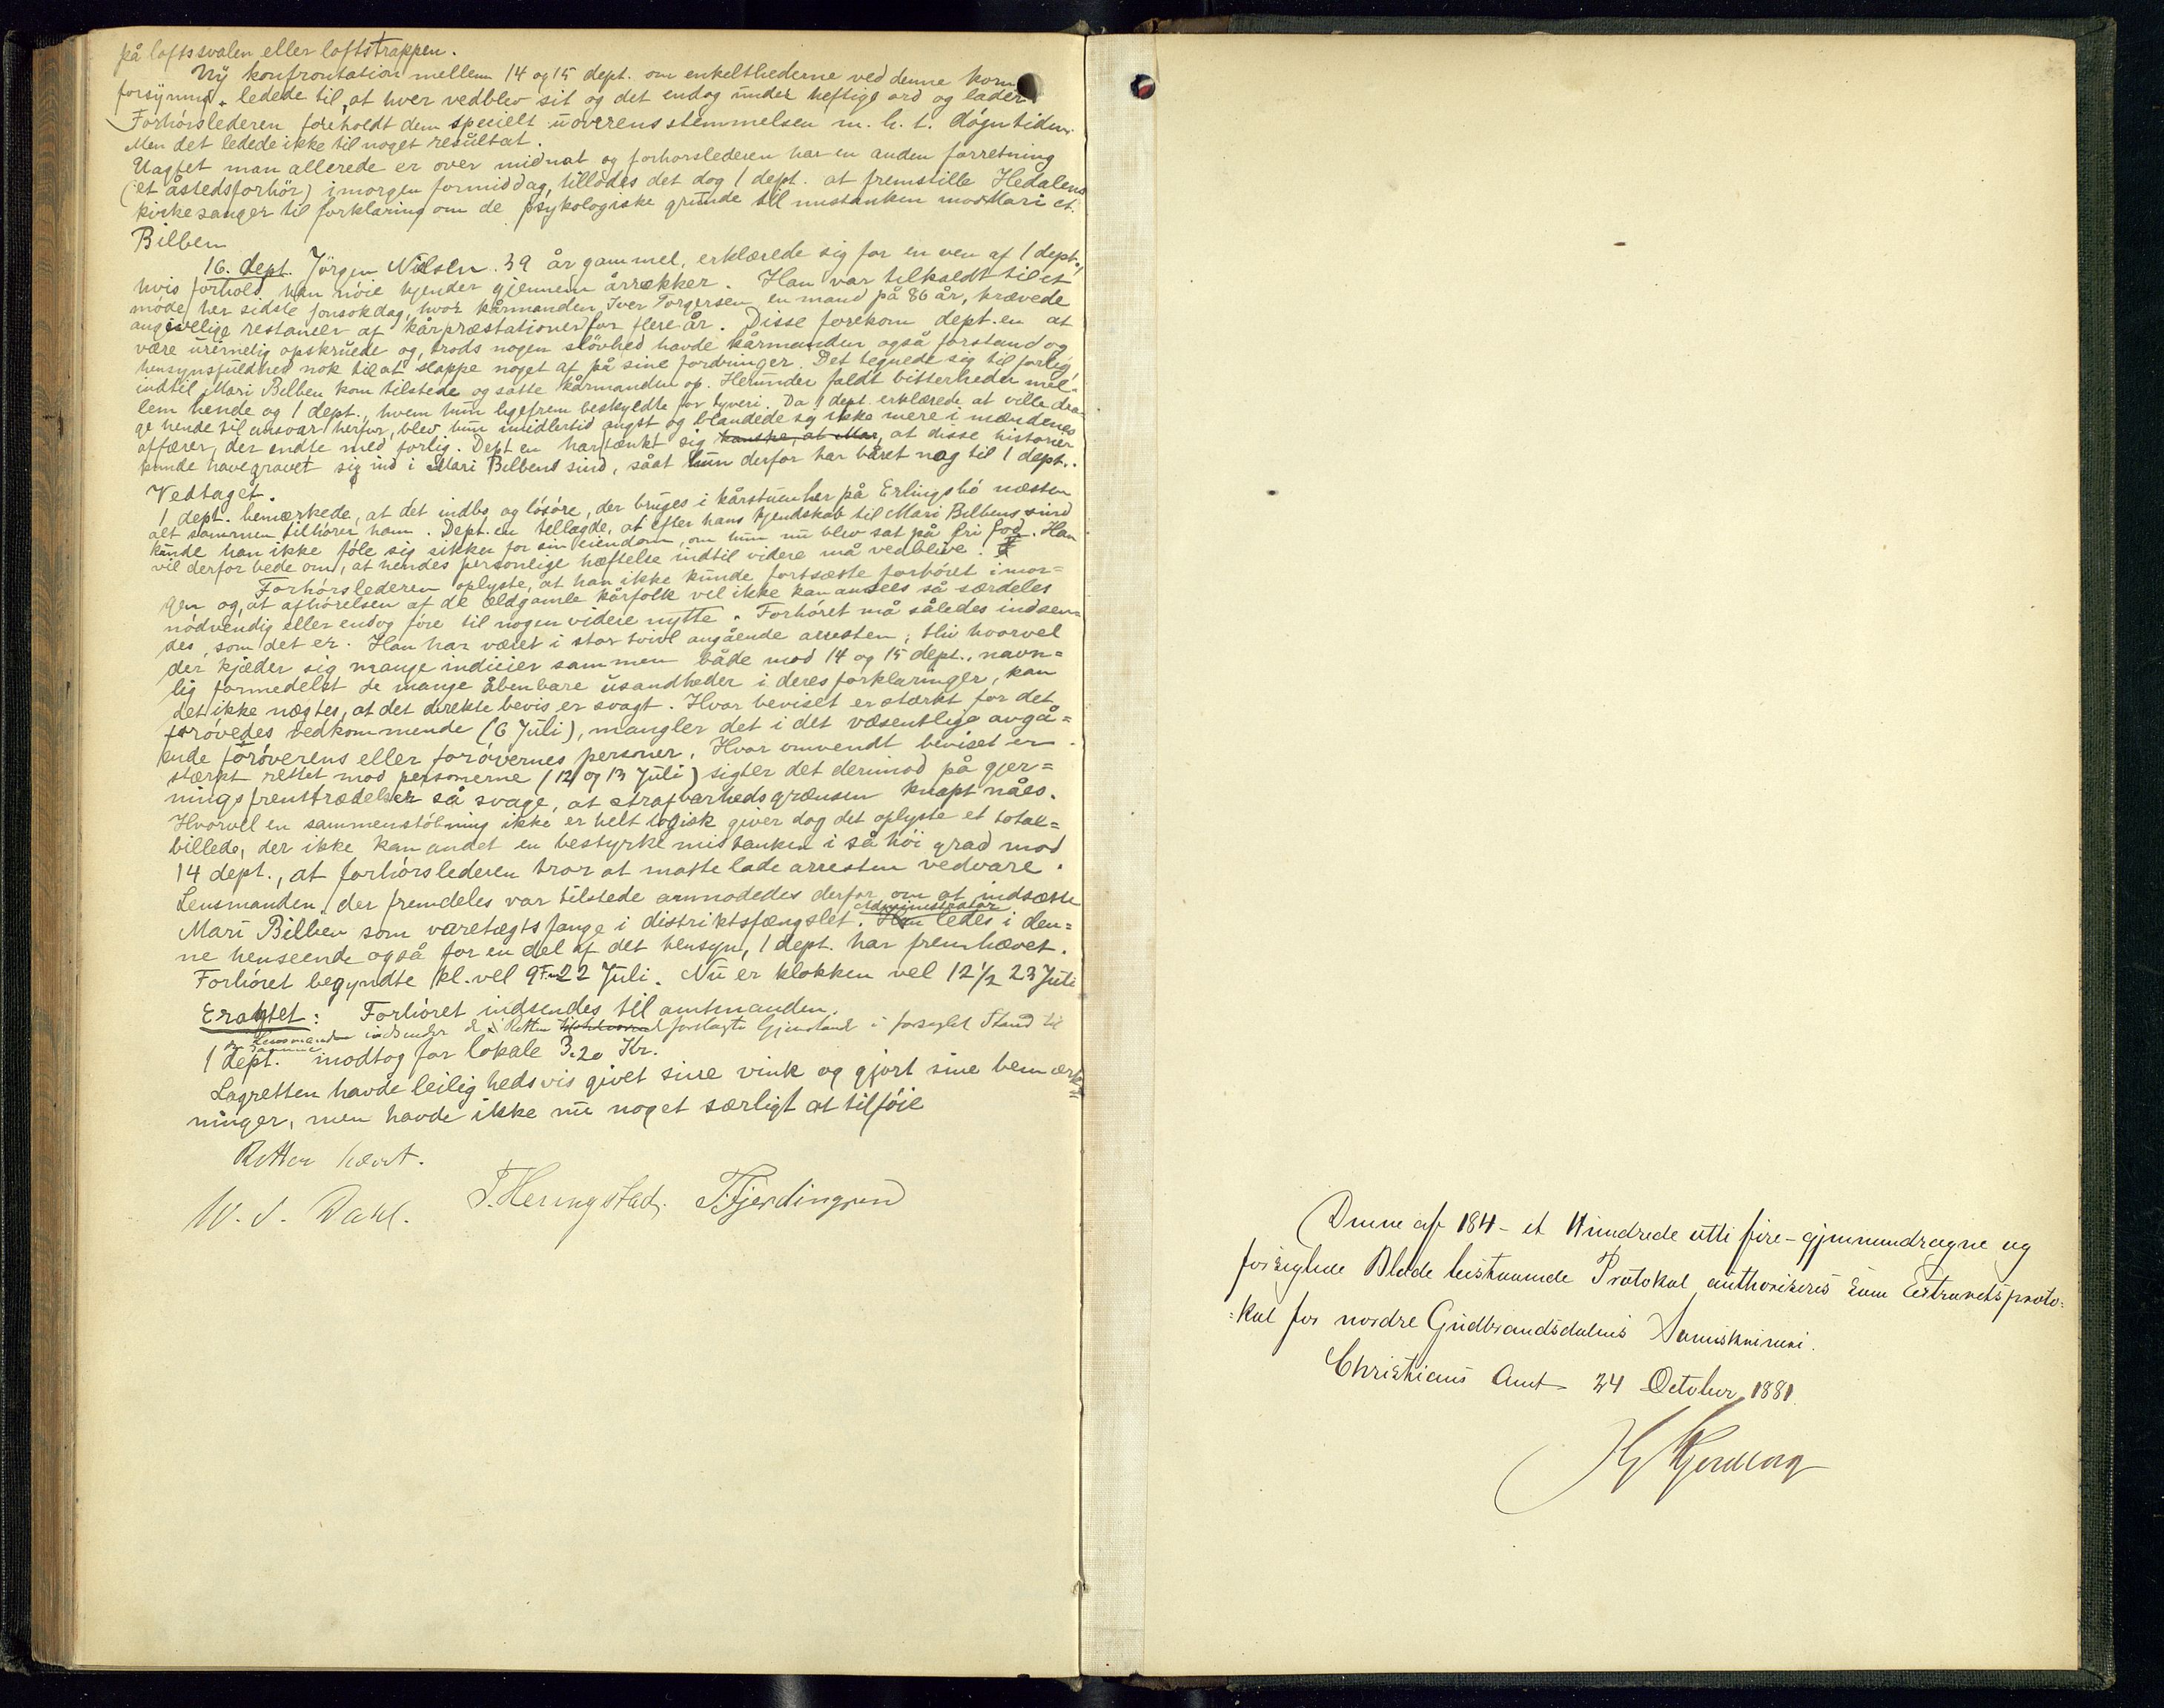 på loftssvalen eller loftstrappen.
Ny konfrontation mellem 14 og 15 dept. om enkelthederne ved denne korn
forsyning, ledede til, at hver vedblev sit og det endog under heftige ord og lader
Forhørslederen foreholdt dem specielt uoverensstemmelsen m. h. t. døgntiden.
Men det ledede ikke til noget resultat.
Uagtet man allerede er over midnat og forhørslederen har en anden forretning
(et åstedsforhør) imorgen formiddag, tillodes det dog 1 dept. at fremstille Hedalens
kirkesanger til forklaring om de psykologiske grunde til mistanken mod Mari et.
Bilben
16. dept. Jörgen Nielsen. 39 år gammel, erklærede sig for en ven af 1 dept.,
hvis forhold han nøie kjender gjennem årrækker. Han var tilkaldt til et
møde her sidste jonsokdag, hvor kårmanden Iver Torgersen, en mand på 86 år, krævede
angivelige restancer af kårpræstationer for flere år. Disse forekom dept.en at
være urimelig opskruede og, trods nogen sløvhed havde kårmanden også forstand og
hensynsfuldhed nok til at slappe noget af på sine fordringer. Det tegnede sig til forlig,
indtil Mari Bilben kom tilstede og satte kårmanden op. Herunder faldt bitterheder mel-
lem hende og 1 dept., hvem hun ligefrem beskyldte for tyveri. Da 1 dept. erklærede at ville dra-
ge hende til ansvar herfor, blev hun imidlertid angst og blandede sig ikke mere i mændenes
affærer, der endte med forlig. Dept en har tænkt sig kanske, at Mar, at disse historier
kunde have gravet sig ind i Mari Bilbens sind, såat hun derfor har båret nag til 1 dept..
Vedtaget.
1 dept. bemærkede, at det indbo og løsøre, der bruges i kårstuen her på Erlingsbö næsten
alt sammen tilhører ham. Dept.en tillagde, at efter hans kjendskab til Mari Bilbens sind
kunde han ikke føle sig sikker for sin eiendom, om hun nu blev sat på fri fod. Han
vil derfor bede om, at hendes personlige hæftelse indtil videre må vedblive.
Forhørslederen oplyste, at han ikke kunde fortsætte forhøret imor=
gen og, at afhørelsen af de ældgamle kårfolk vel ikke kan ansees så særdeles
nødvendig eller endog føre til nogen videre nytte. Forhøret må således indsen=
des, som det er. Han har været i stor tvivl angående arresten; thi hvorvel
der kjæder sig mange indicier sammen både mod 14 og 15 dept., navn=
lig formedelst de mange åbenbare usandheder i deres forklaringer, kan
det ikke nægtes, at det direkte bevis er svagt. Hvor beviset er stærkt for det
forøvedes vedkommende (6 Juli), mangler det i det væsentlige angå=
ende forøverens eller forøvernes personer. Hvor omvendt beviset er
stærkt rettet mod personerne (12 og 13 Juli) sigter det derimod på gjer=
ningsfremtrædelser så svage, at strafbarhedsgrænsen knapt nåes.
Hvorvel en sammenstøbning ikke er helt logisk giver dog det oplyste et total=
billede, der ikke kan andet en bestyrke mistanken i så høi grad mod
14 dept., at forhørslederen tror at måtte lade arresten vedvare.
Lensmanden, der fremdeles var tilstede anmodedes derfor om at indsætte
Mari Bilben som varetægtsfange i distriktsfængslet. Han ledes i den=
Administrator
ne henseende også for en del af det hensyn, 1 dept. har fremhævet.
Forhøret begyndte kl. vel 9 Fm 22 Juli. Nu er klokken vel 12 1/2 23 Juli
Eragtet: Forhøret indsendes til amtmanden.
Lensmanden indsender de i Retten forelagte Gjenstande i forseglet Stand til
samme
1 dept. modtog for lokale 3.20 Kr.
Lagretten havde leilighedsvis givet sine vink og gjort sine bemærk=
ninger, men havde ikke nu noget særligt at tilføie
Retten hævet.
W. S. Dahl. T. Heringstad. T. Fjerdingren
Denne af 184 - et Hundrede otti fire - gjennemdragne og
forseglede Blade bestaaende Protokol authoriseres som Extraretsproto=
=kol for nordre Gudbrandsdalens Sorenskriveri.
Christians Amt 24 October 1881.